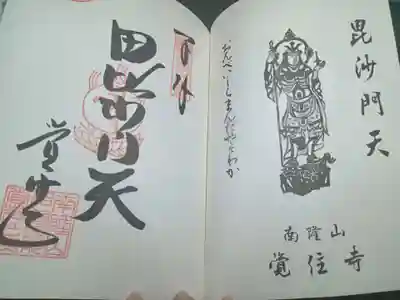 毘沙門天
南隆山
覚住寺
おんべいしらまんだやそわか
奉拝
毘沙門天